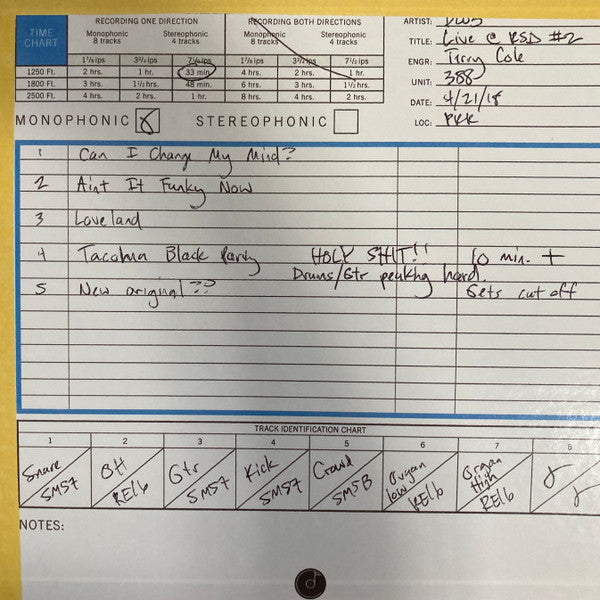 TIME CHART
RECORDING ONE DIRECTION
RECORDING BOTH DIRECTIONS
Monophonic 8 tracks
Stereophonic 4 tracks
Monophonic 8 tracks
Stereophonic 4 tracks
1⅞ ips 3¾ ips 7½ ips 1⅞ ips 3¾ ips 7½ ips
1250 Ft. 2 hrs. 1 hr. 33 min. 4 hrs. 2 hrs. 1 hr.
1800 Ft. 3 hrs. 1½ hrs. 48 min. 6 hrs. 3 hrs. 1½ hrs.
2500 Ft. 4 hrs. 2 hrs. 1 hr. 8 hrs. 4 hrs. 2 hrs.
ARTIST:
TITLE: Live @ RSD #2
ENGR: Terry Cole
UNIT: 388
DATE: 4/21/18
LOC:
MONOPHONIC X STEREOPHONIC
1 Can I Change My Mind?
2 Aint It Funky Now
3 Loveland
4 Tacoma Black Party HOLY SHIT!! 10 min. +
Drums/Gtr peaking hard.
5 New original?? Gets cut off
TRACK IDENTIFICATION CHART
1 2 3 4 5 6 7 8
Snare OH Gtr Kick Crowd Organ low Organ High
SM57 RE16 SM57 SM57 SM5B RE16 RE16
NOTES: